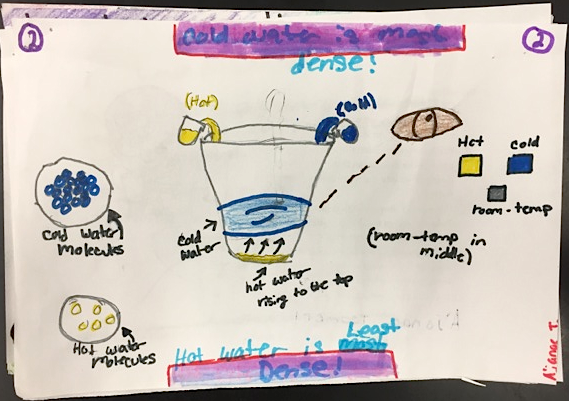 2
Cold water is most
dense!
2
(Hot)
(Cold)
Hot
Cold
room-temp
Cold water
molecules
Cold
water
hot water
rising to the top
(room-temp in
middle)
Hot water
molecules
Hot water is Least
Dense!